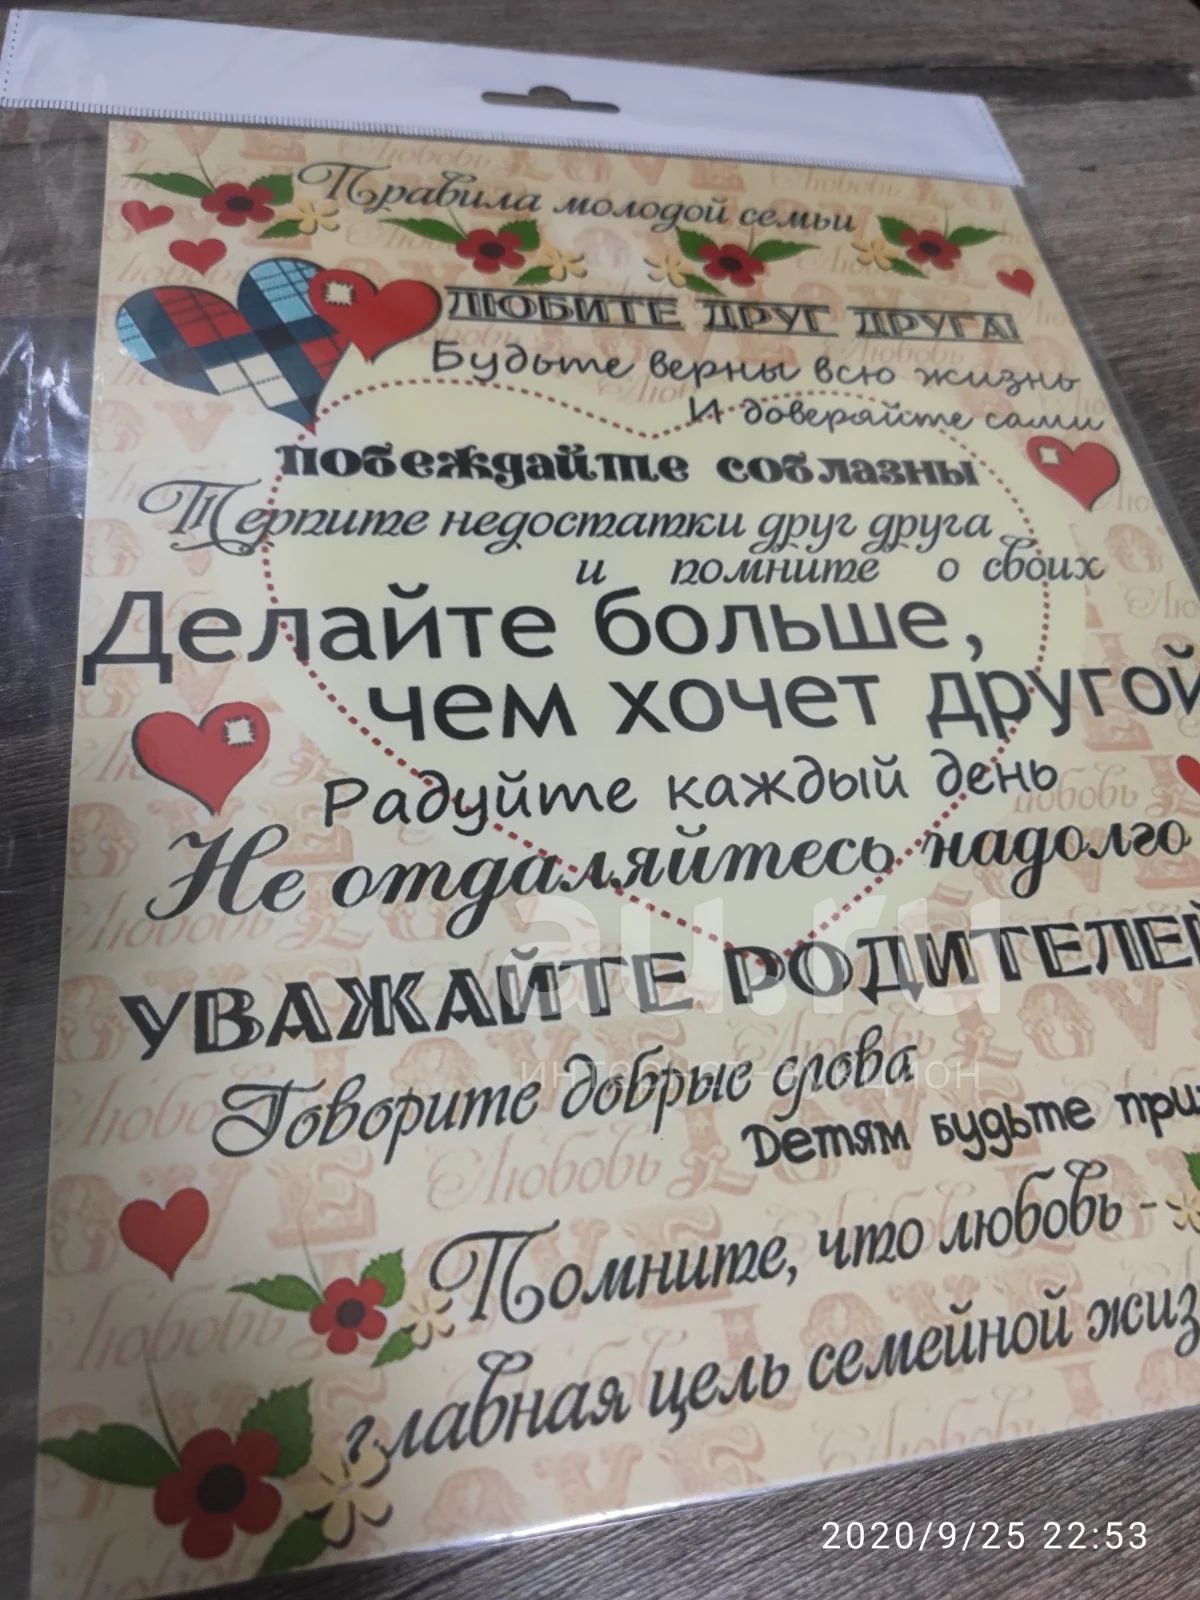 Правила молодой семьи
ЛЮБИТЕ ДРУГ ДРУГА!
Будьте верны всю жизнь
И доверяйте сами
побеждайте соблазны
Терпите недостатки друг друга
и помните о своих
Делайте больше,
чем хочет другой
Радуйте каждый день
Не отдаляйтесь надолго
УВАЖАЙТЕ РОДИТЕЛЕЙ
Говорите добрые слова
Детям будьте
Помните, что любовь -
главная цель семейной
au.ru
интернет-аукцион
2020/9/25 22:53